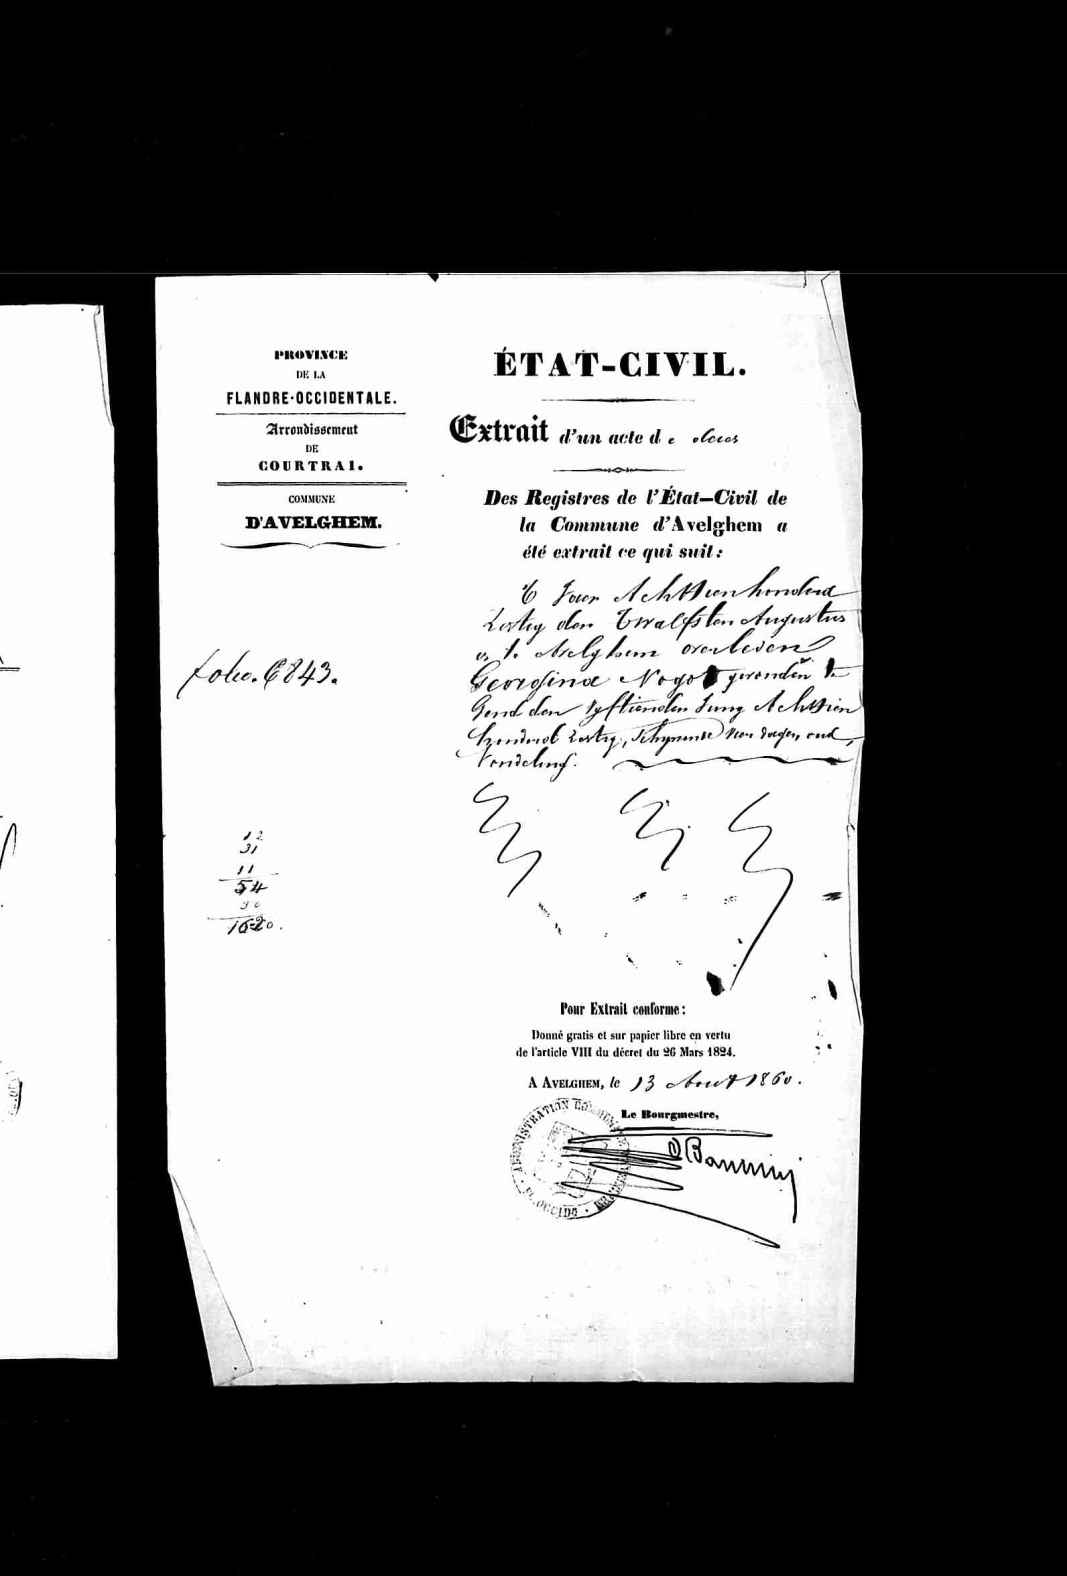 PROVINCE
DE LA
FLANDRE-OCCIDENTALE.
Arrondissement
DE
COURTRAI.
COMMUNE
D'AVELGHEM.
ÉTAT-CIVIL.
Extrait d'un acte de
Des Registres de l'État-Civil de
la Commune d'Avelghem a
été extrait ce qui suit:
Jaar Achttienhonderd
Zestig den Twalfsten Augustus
is te Avelghem overleden
Georgina gevonden te
Gend den vyftienden Juny Achttien
honderd Zestig, oud,
Vondeling.
folio. 6843.
12
31
11
54
30
16-20.
Pour Extrait conforme:
Donné gratis et sur papier libre en vertu
de l'article VIII du décret du 26 Mars 1824.
A AVELGHEM, le 13 Aout 1860.
Le Bourgmestre,
ADMINISTRATION